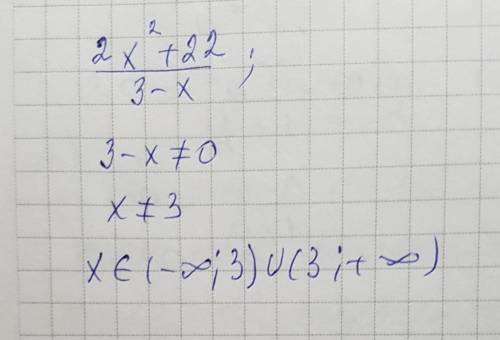 2x² + 22
3 - x ;
3 - x ≠ 0
x ≠ 3
x ∈ (-∞; 3) ∪ (3; +∞)